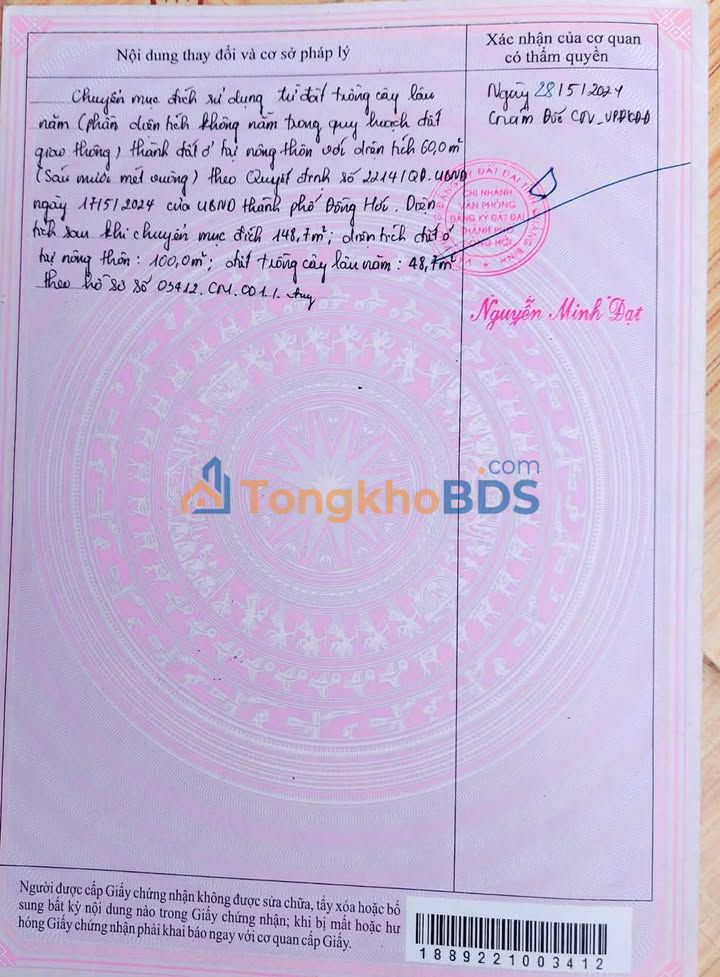 Nội dung thay đổi và cơ sở pháp lý
Xác nhận của cơ quan
có thẩm quyền
Chuyển mục đích sử dụng từ đất trồng cây lâu
năm (phần diện tích không nằm trong quy hoạch đất
giao thông) thành đất ở tại nông thôn với diện tích 60,0m²
(Sáu mươi mét vuông) theo Quyết định số 2214/QĐ.UBND
ngày 17/5/2024 của UBND thành phố Đồng Hới. Diện
tích sau khi chuyển mục đích 148,7m²; diện tích đất ở
tại nông thôn: 100,0m²; đất trồng cây lâu năm: 48,7m²
theo hồ sơ số 03412.CM.001.1.
Ngày 28/5/2024
Giám Đốc CN_VPĐKĐĐ
CHI NHÁNH
VĂN PHÒNG
ĐĂNG KÝ ĐẤT ĐAI
THÀNH PHỐ
ĐỒNG HỚI
Nguyễn Minh Đạt
TongkhoBDS
.com
Người được cấp Giấy chứng nhận không được sửa chữa, tẩy xóa hoặc bổ
sung bất kỳ nội dung nào trong Giấy chứng nhận; khi bị mất hoặc hư
hỏng Giấy chứng nhận phải khai báo ngay với cơ quan cấp Giấy.
1889221003412